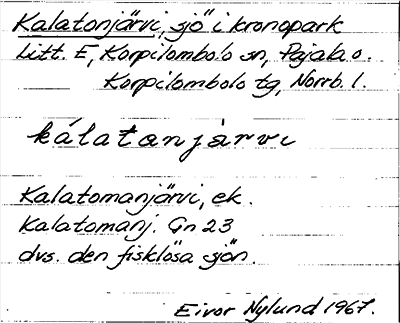 Kalatonjärvi, sjö i kronopark
Litt. E, Korpilombolo sn, Pajala o.
Korpilombolo tg, Norrb. l.
kálatanjàrvi
Kalatomanjärvi, ek.
Kalatomanj. Gn 23
dvs. den fisklösa sjön.
Eivor Nylund 1967.